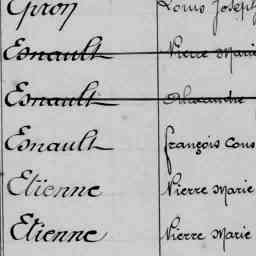 Epron Louis Joseph
Esnault Pierre Marie
Esnault Alexandre
Esnault François Cons
Etienne Pierre Marie
Etienne Pierre Marie